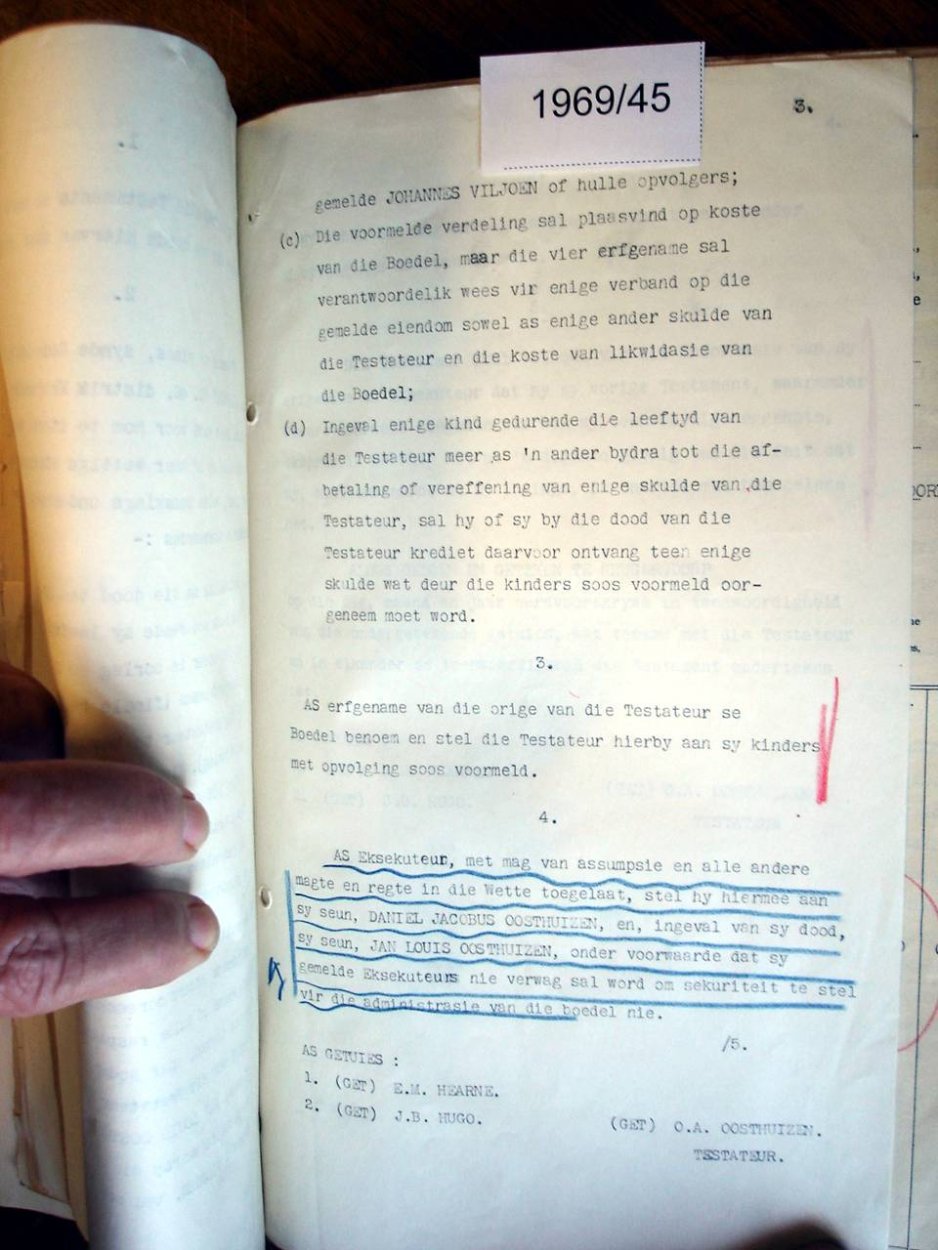 1969/45
3.
gemelde JOHANNES VILJOEN of hulle opvolgers;
(c) Die voormelde verdeling sal plaasvind op koste
van die Boedel, maar die vier erfgename sal
verantwoordelik wees vir enige verband op die
gemelde eiendom sowel as enige ander skulde van
die Testateur en die koste van likwidasie van
die Boedel;
(d) Ingeval enige kind gedurende die leeftyd van
die Testateur meer as 'n ander bydra tot die af-
betaling of vereffening van enige skulde van die
Testateur, sal hy of sy by die dood van die
Testateur krediet daarvoor ontvang teen enige
skulde wat deur die kinders soos voormeld oor-
geneem moet word.
3.
AS erfgename van die orige van die Testateur se
Boedel benoem en stel die Testateur hierby aan sy kinders
met opvolging soos voormeld.
4.
AS Eksekuteur, met mag van assumpsie en alle andere
magte en regte in die Wette toegelaat, stel hy hiermee aan
sy seun, DANIEL JACOBUS OOSTHUIZEN, en, ingeval van sy dood,
sy seun, JAN LOUIS OOSTHUIZEN, onder voorwaarde dat sy
gemelde Eksekuteurs nie verwag sal word om sekuriteit te stel
vir die administrasie van die boedel nie.
/5.
AS GETUIES :
1. (GET) E.M. HEARNE.
2. (GET) J.B. HUGO.
(GET) O.A. OOSTHUIZEN.
TESTATEUR.